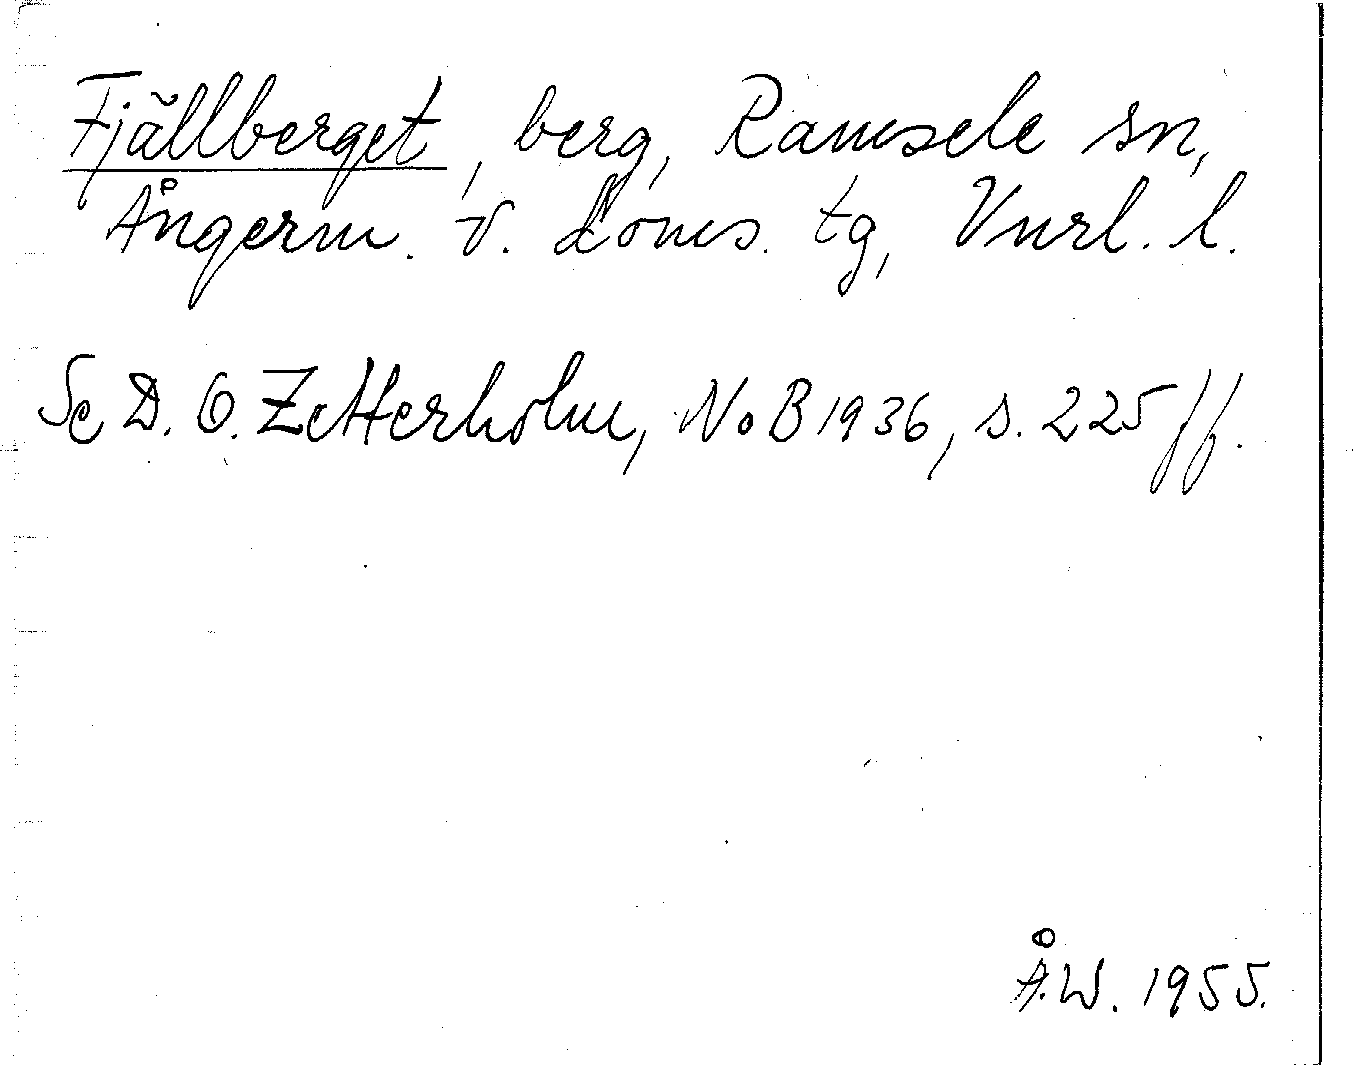 Fjällberget, berg, Ramsele sn,
Ångerm. v. Doms. tg, Vnrl. l.
Se D. O. Zetterholm, NoB 1936, s. 225 ff.
Å.W. 1955.